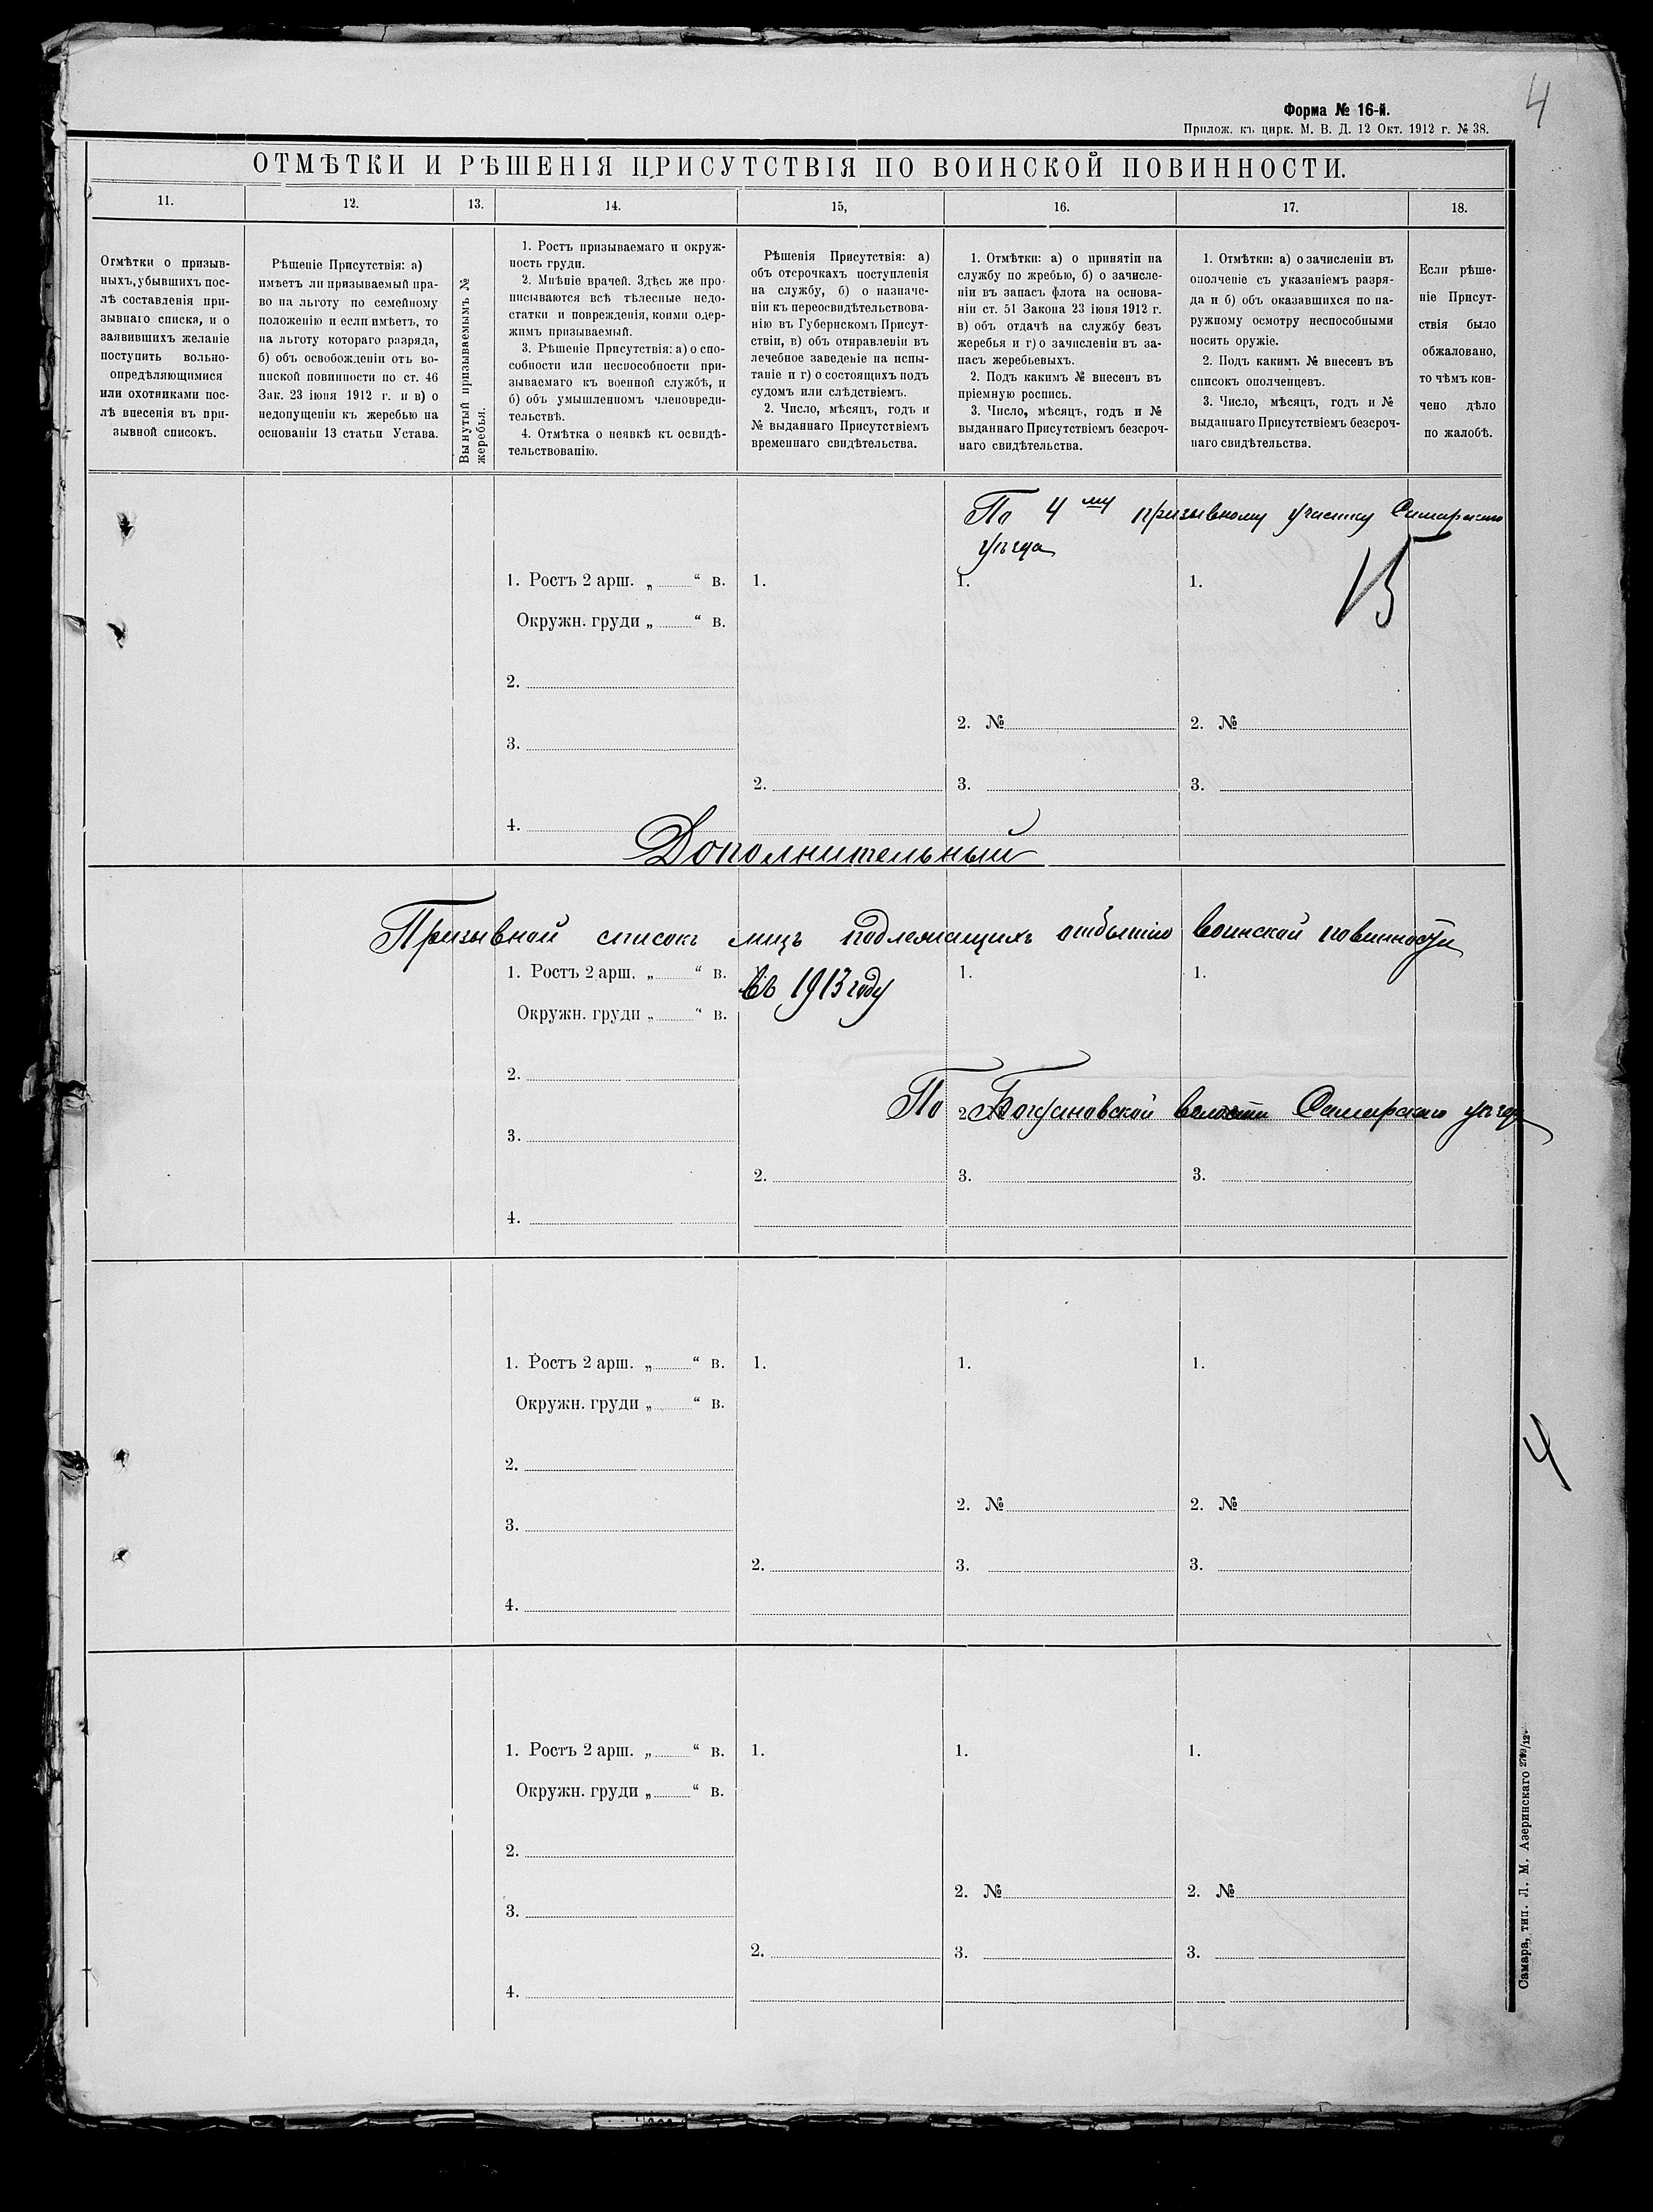 4
Форма № 16-й.
Прилож. къ цирк. М. В. Д. 12 Окт. 1912 г. № 38.
ОТМѢТКИ И РѢШЕНІЯ ПРИСУТСТВІЯ ПО ВОИНСКОЙ ПОВИННОСТИ.
11.
12.
13.
14.
15,
16.
17.
18.
Отмѣтки о призыв-
ныхъ, убывшихъ пос-
лѣ составленія при-
зывнаго списка, и о
заявившихъ желаніе
поступить вольно-
опредѣляющимися
или охотниками пос-
лѣ внесенія въ при-
зывной списокъ.
Рѣшеніе Присутствія: а)
имѣетъ ли призываемый пра-
во на льготу по семейному
положенію и если имѣетъ, то
на льготу котораго разряда,
б) объ освобожденіи отъ во-
инской повинности по ст. 46
Зак. 23 іюня 1912 г. и в) о
недопущеніи къ жеребью на
основаніи 13 статьи Устава.
Вынутый призываемымъ №
жеребья.
1. Ростъ призываемаго и окруж-
ность груди.
2. Мнѣніе врачей. Здѣсь же про-
писываются всѣ тѣлесные недо-
статки и поврежденія, коими одер-
жимъ призываемый.
3. Рѣшеніе Присутствія: а) о спо-
собности или неспособности при-
зываемаго къ военной службѣ, и
б) объ умышленномъ членовреди-
тельствѣ.
4. Отмѣтка о неявкѣ къ освидѣ-
тельствованію.
Рѣшенія Присутствія: а)
объ отсрочкахъ поступленія
на службу, б) о назначе-
ніи къ переосвидѣтельствова-
нію въ Губернскомъ Присут-
ствіи, в) объ отправленіи въ
лечебное заведеніе на испы-
таніе и г) о состоящихъ подъ
судомъ или слѣдствіемъ.
2. Число, мѣсяцъ, годъ и
№ выданнаго Присутствіемъ
временнаго свидѣтельства.
1. Отмѣтки: а) о принятіи на
службу по жребью, б) о зачисле-
ніи въ запасъ флота на основа-
ніи ст. 51 Закона 23 іюня 1912 г.
в) объ отдачѣ на службу безъ
жеребья и г) о зачисленіи въ за-
пасъ жеребьевыхъ.
2. Подъ какимъ № внесенъ въ
пріемную роспись.
3. Число, мѣсяцъ, годъ и №
выданнаго Присутствіемъ безсроч-
наго свидѣтельства.
1. Отмѣтки: а) о зачисленіи въ
ополченіе съ указаніемъ разря-
да и б) объ оказавшихся по на-
ружному осмотру неспособными
носить оружіе.
2. Подъ какимъ № внесенъ въ
списокъ ополченцевъ.
3. Число, мѣсяцъ, годъ и №
выданнаго Присутствіемъ безсроч-
наго свидѣтельства.
Если рѣше-
ніе Присут-
ствія было
обжаловано,
то чѣмъ кон-
чено дѣло
по жалобѣ.
По 4му призывному участку Самарскаго
уѣзда
15
1. Ростъ 2 арш. „ “ в.
1.
1.
1.
Окружн. груди „ “ в.
2.
2. №
2. №
3.
2.
3.
3.
4.
Дополнительный
Призывной списокъ лицъ подлежащихъ отбытію воинской повинности
1. Ростъ 2 арш. „ “ в.
въ 1913 году
1.
1.
Окружн. груди „ “ в.
2.
По Богдановской волости Самарскаго уѣзда
2
3.
2.
3.
3.
4.
1. Ростъ 2 арш. „ “ в.
1.
1.
1.
Окружн. груди „ “ в.
4
2.
2. №
2. №
3.
2.
3.
3.
4.
1. Ростъ 2 арш. „ “ в.
1.
1.
1.
Окружн. груди „ “ в.
2.
2. №
2. №
3.
2.
3.
3.
4.
Самара, тип. Л. М. Азеринскаго